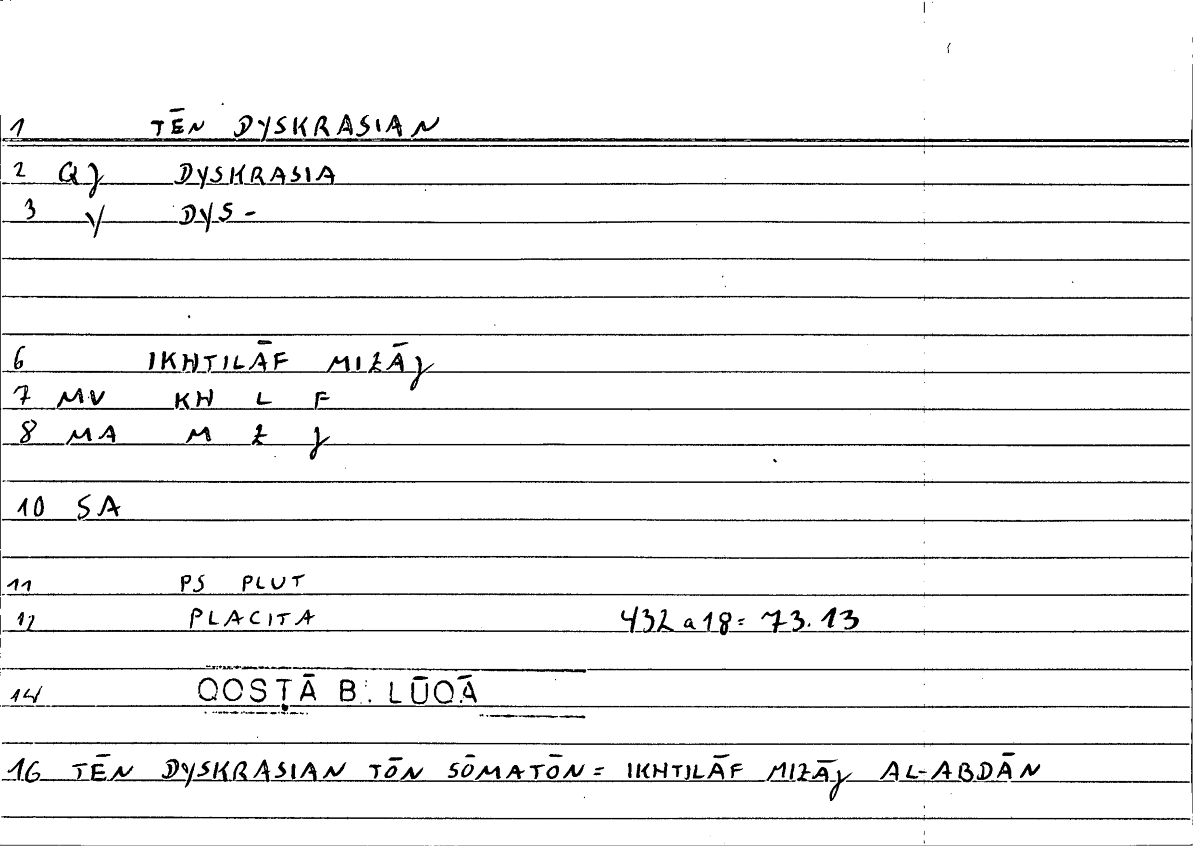 1 TĒN DYSKRASIAN
2 QJ DYSKRASIA
3 V DYS-
6 IKHTILĀF MIZĀJ
7 MV KH L F
8 MA M Z J
10 SA
11 PS PLUT
12 PLACITA 432 a 18 = 73.13
14 QOSṬĀ B. LŪQĀ
16 TĒN DYSKRASIAN TŌN SŌMATŌN = IKHTILĀF MIZĀJ AL-ABDĀN